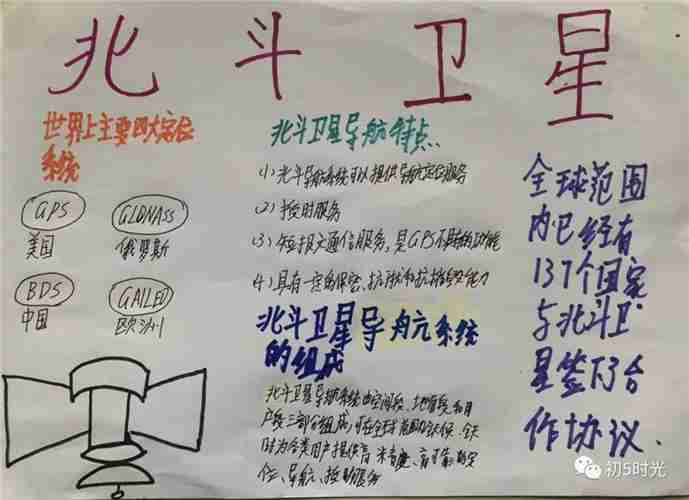 北斗卫星
世界上主要四大定位
系统
GPS
美国
GLDNASS
俄罗斯
BDS
中国
GAILEO
欧洲
北斗卫星导航特点
(1)北斗导航系统可以提供导航定位服务
(2)授时服务
(3)短报文通信服务,是GPS不具有的功能
(4)具有一定的保密、抗干扰和抗摧毁能力
北斗卫星导航系统
的组成
北斗卫星导航系统由空间段、地面段和用
户段三部分组成,可在全球范围内全天候、全天
时为各类用户提供高
定位、导航、授时服务
全球范围
内已经有
137个国家
与北斗卫
星签了合
作协议.
初5时光